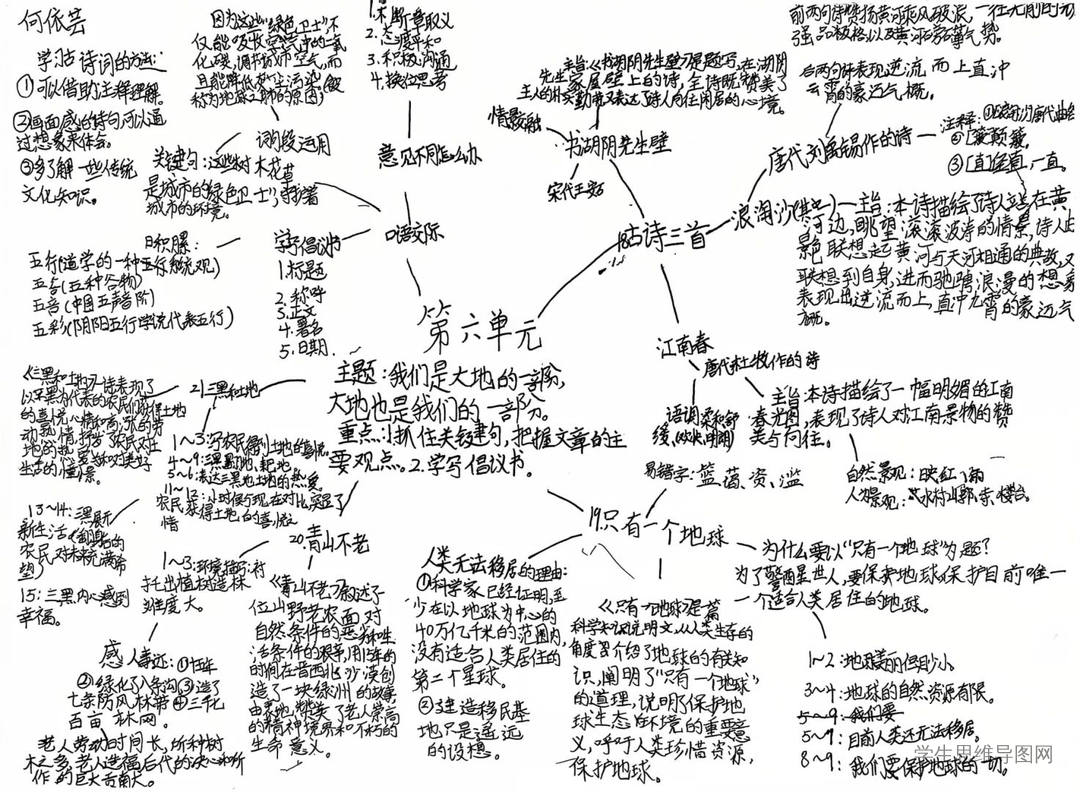 何依芸
学习古诗词的方法:
①可以借助注释理解。
②画面感的诗句可以通
过想象来体会。
③多了解一些传统
文化知识。
因为这些“绿色卫士”不
仅能吸收空气中的二氧
化碳,调节城市空气,而
且能降低
词段运用
关键句:这些树木花草
是城市的绿色卫士”,守护着
城市的环境。
1.不断章取义
2.态度平和
3.积极沟通
4.换位思考
意见不同怎么办
口语交际
学写倡议书
1.标题
2.称呼
3.正文
4.署名
5.日期
日积月累:
五行(道学的一种系统观)
五谷(五种谷物)
五音(中国五声音阶)
五彩(阴阳五行学说代表五行)
第六单元
主题:我们是大地的一部分,
大地也是我们的一部分。
重点:1.抓住关键句,把握文章的主
要观点。2.学写倡议书。
18古诗三首
书湖阴先生壁
情景交融
宋代王安石
主旨:《书湖阴先生壁》是题写在湖阴
先生家屋壁上的诗,全诗既赞美了
主人的朴实勤劳,又表达了诗人向往闲居的心境。
浪淘沙(其一)
唐代刘禹锡作的诗
前两句诗赞扬黄河乘风破浪,一往无前的
强品格,以及黄河磅礴气势。
后两句诗表现逆流而上直冲
云霄的豪迈气概。
注释:
②簸:颠簸。
③直:一直。
主旨:本诗描绘了诗人站在黄
河边,眺望滚滚波涛的情景,诗人由
景色联想起黄河与天河相通的典故,又
联想到自身,进而驰骋浪漫的想象
表现出逆流而上,直冲九霄的豪迈气
概。
江南春
唐代杜牧作的诗
语调柔和舒
缓,(欢快,明朗)
主旨:本诗描绘了一幅明媚的江南
春光图,表现了诗人对江南景物的赞
美与向往。
自然景观:映红、雨
人文景观:水村山郭、寺、楼台。
19.只有一个地球
易错字:篮、蔼、资、滥
人类无法移居的理由:
①科学家已经证明,至
少在以地球为中心的
40万亿千米的范围内,
没有适合人类居住的
第二个星球。
②建造移民基
地只是遥远
的设想。
《只有一个地球》是一篇
科学知识说明文,从人类生存的
角度介绍了地球的有关知
识,阐明了“只有一个地球”
的道理,说明了保护地
球生态环境的重要意
义,呼吁人类珍惜资源,
保护地球。
为什么要以“只有一个地球”为题?
为了警醒世人,要保护地球,保护目前唯一
一个适合人类居住的地球。
1~2:地球美丽但渺小。
3~4:地球的自然资源有限。
5~9:我们要
5~7:目前人类还无法移居。
8~9:我们要保护地球的一切。
20.青山不老
1~3:环境描写:衬
托出植树造林
难度大。
《青山不老》叙述了
一位山野老农,面对
自然条件的恶劣和生
活条件的艰辛,用15年的
时间在晋西北沙漠创
造了一块绿洲的故事
由衷地赞美了老人崇高
的精神境界和不朽的
生命意义。
感人事迹:①15年
②绿化了八条沟③造了
七条防风林带④三千七
百亩林网。
老人劳动时间长,所种树
木之多,老人造福后代的决心和所
作的巨大贡献大。
21三黑和土地
《三黑和土地》一诗表现了
以三黑为代表的农民们获得土地
的喜悦心情和高涨的劳
动热情,抒发了农民对土
地的热爱以及对美好
生活的憧憬。
1~3:写农民得到土地的喜悦。
4~9:三黑翻地、耙地
5~6:表达三黑对土地的热爱
11~12:小时候与现在对比,突显了
农民获得土地的喜悦之
情
13~14:三黑展示
新生活
农民对未来充满希
望)
15:三黑内心感到
幸福。
学生思维导图网